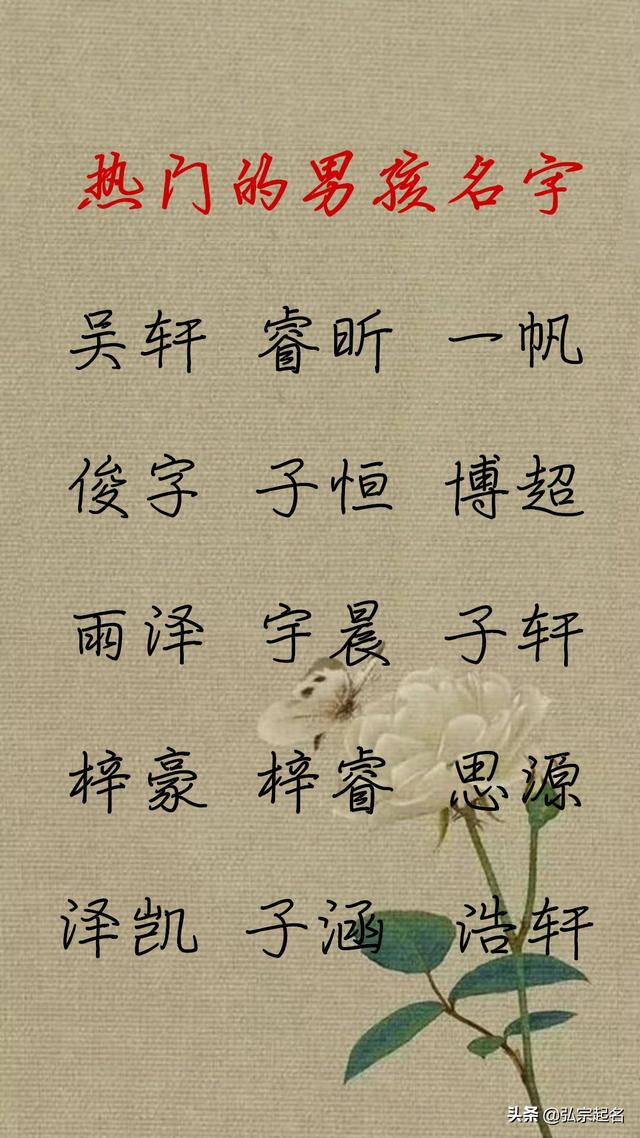 热门的男孩名字
吴轩 睿昕 一帆
俊字 子恒 博超
雨泽 宇晨 子轩
梓豪 梓睿 思源
泽凯 子涵 浩轩
头条 @弘宗起名